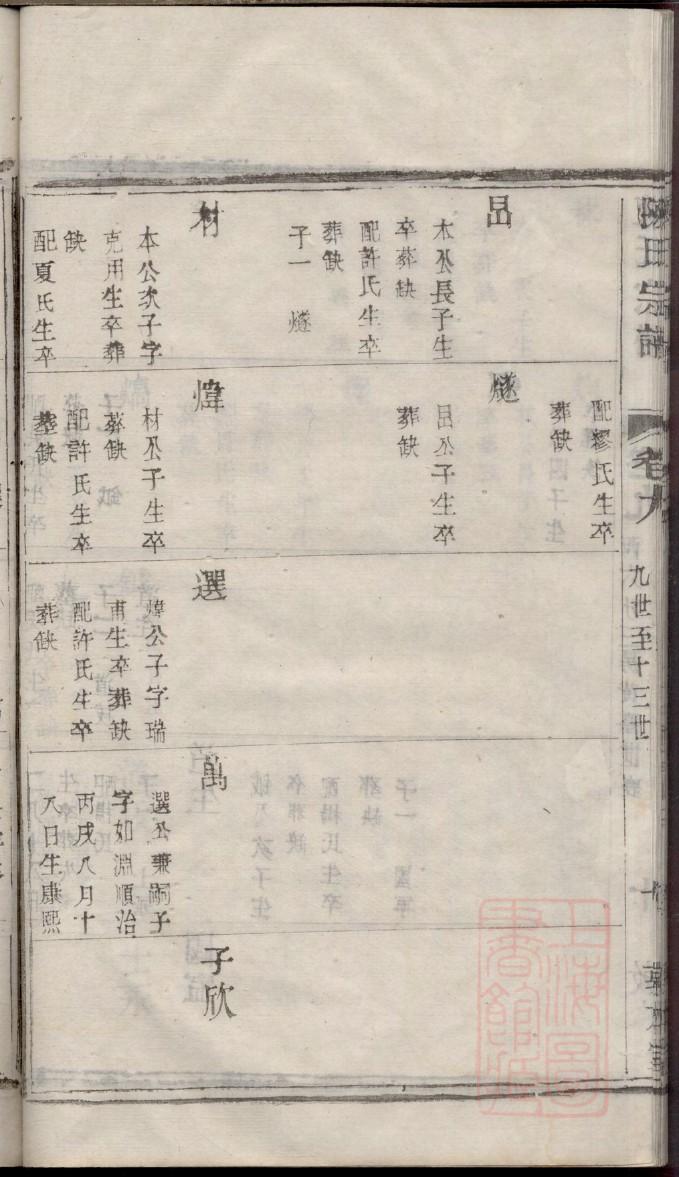 陳氏宗譜
卷九
九世至十三世
呂
木公長子生
卒葬缺
配許氏生卒
葬缺
子一 燧
材
本公次子字
克用生卒葬
缺
配夏氏生卒
配繆氏生卒
葬缺
燧
呂公子生卒
葬缺
煒
材公子生卒
葬缺
配許氏生卒
葬缺
選
煒公子字瑞
甫生卒葬缺
配許氏生卒
葬缺
萬
選公兼嗣子
字如淵順治
丙戌八月十
八日生康熙
子欣
上海圖書館藏